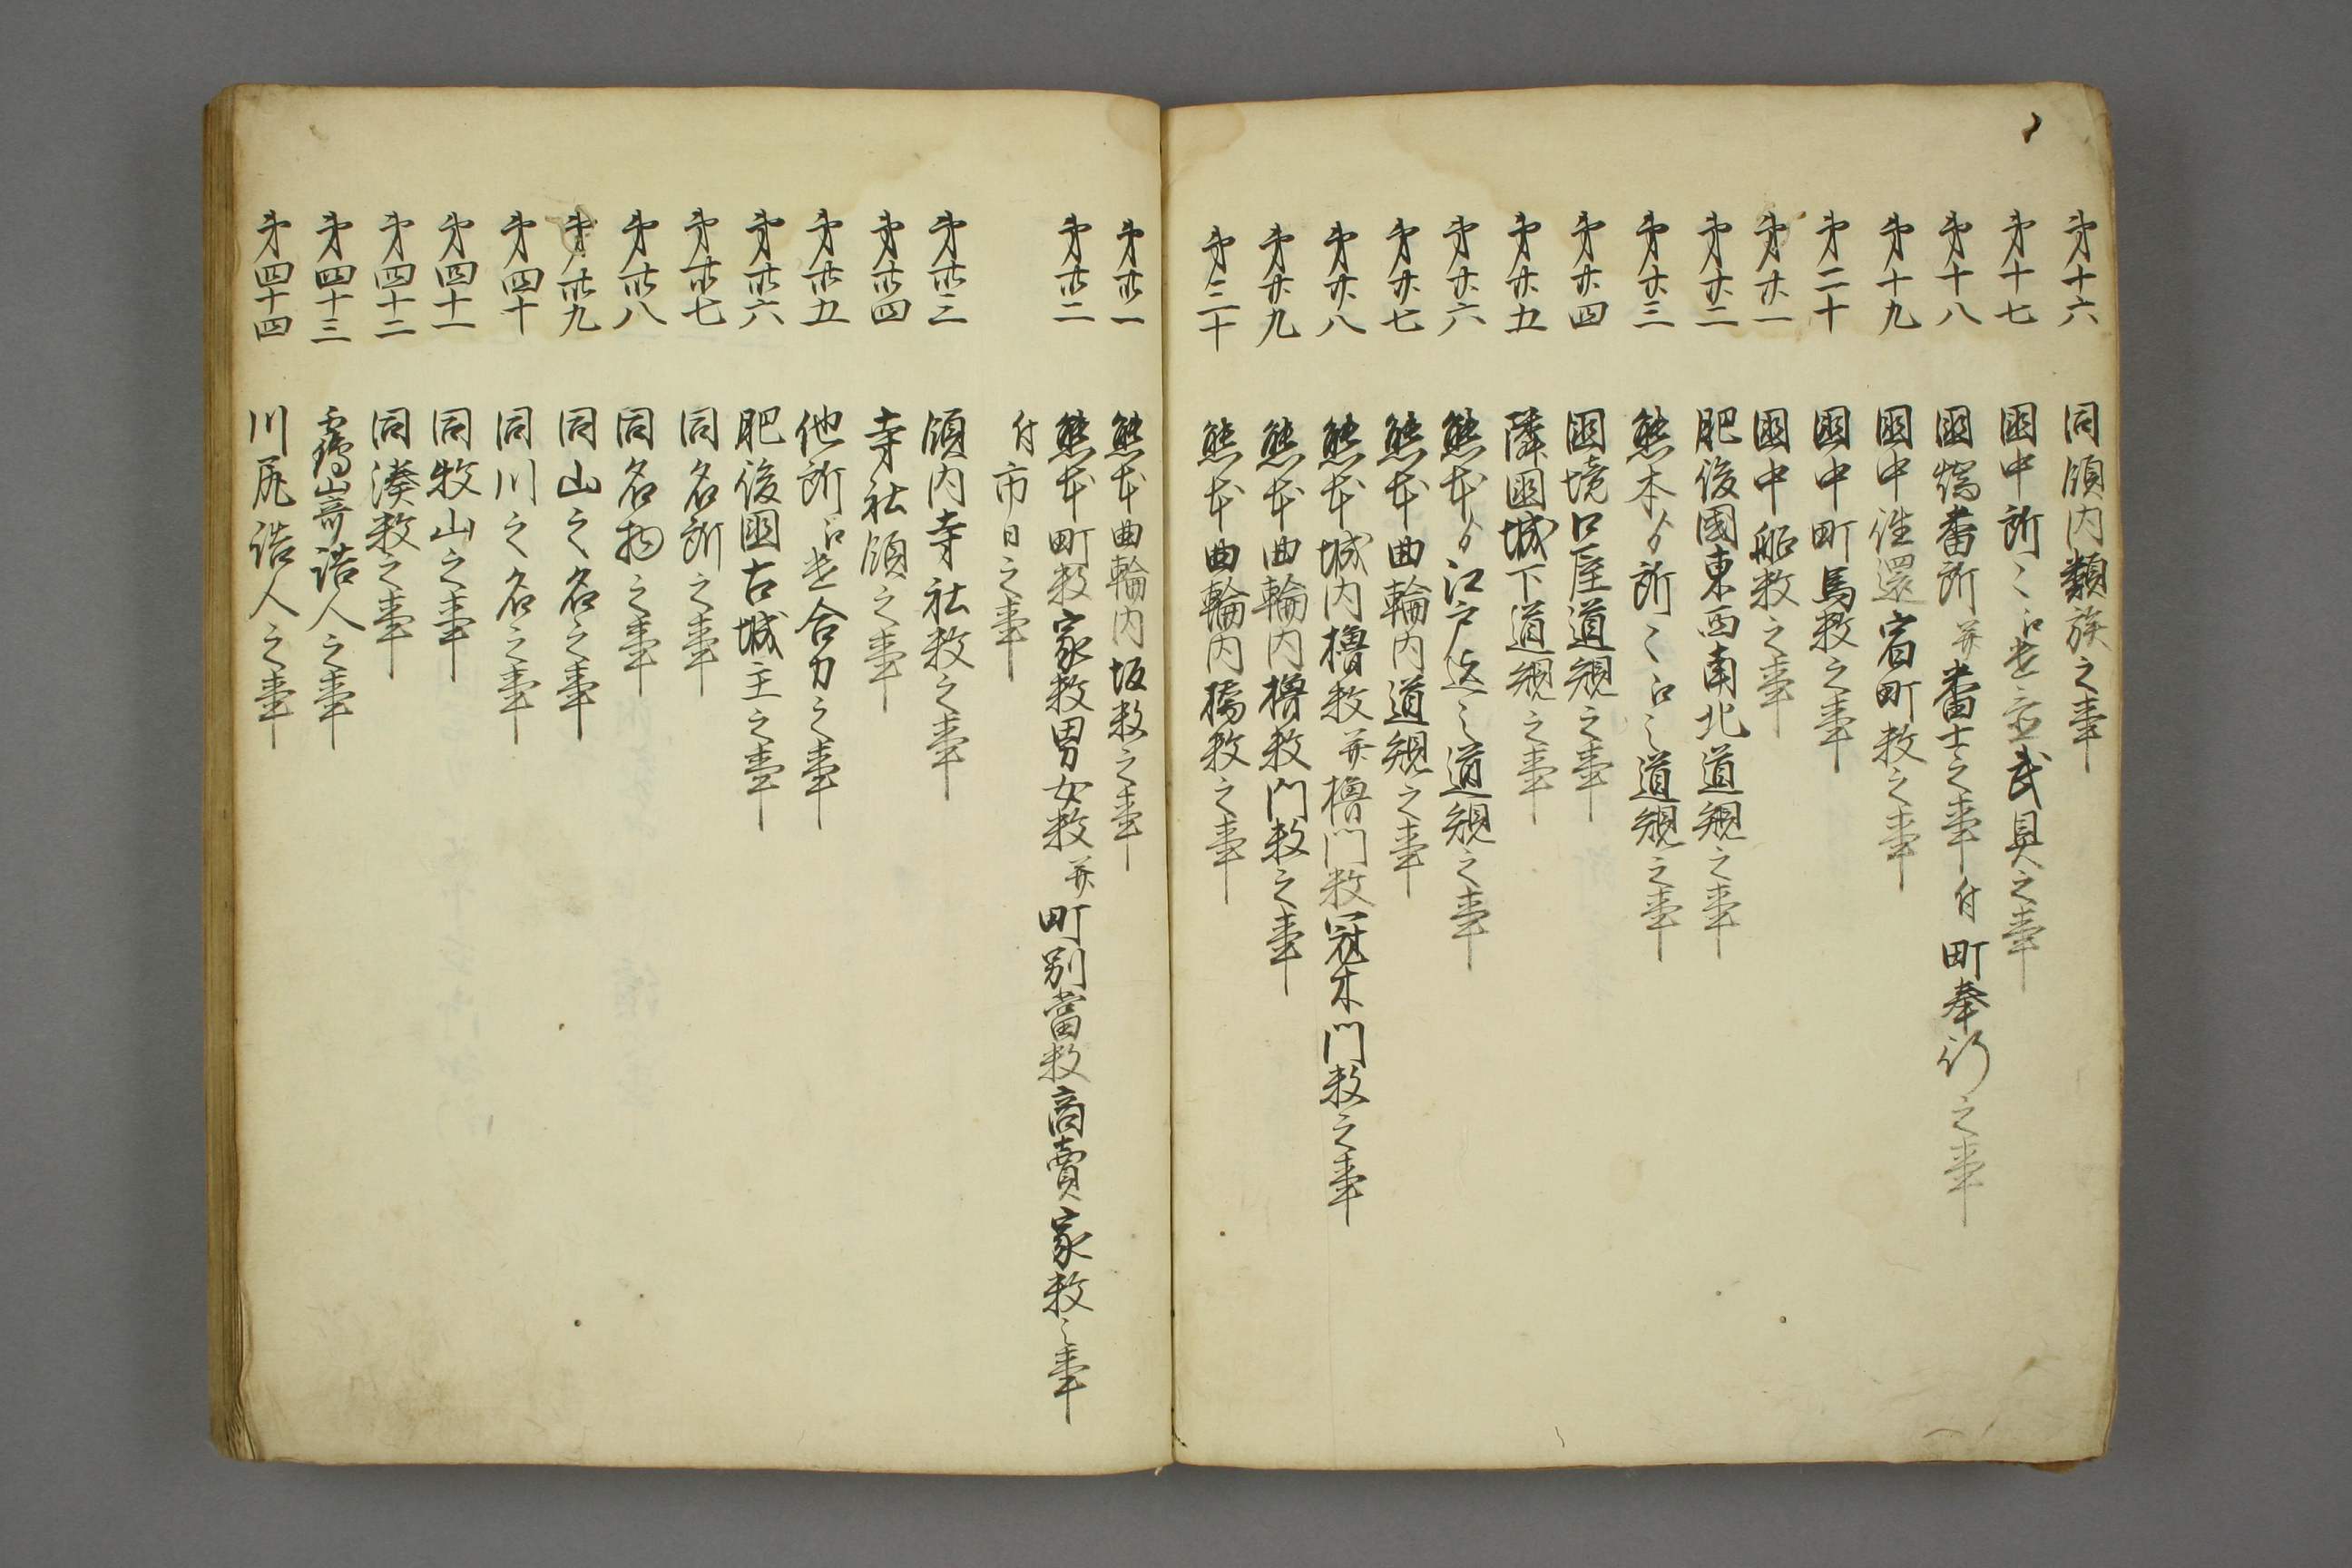 第十六 同領内類族之事
第十七 国中所々ニ有之武具之事
第十八 国端番所并番士之事付町奉行之事
第十九 国中往還宿町数之事
第二十 国中町馬数之事
第廿一 国中船数之事
第廿二 肥後國東西南北道規之事
第廿三 熊本ゟ所々ニ之道規之事
第廿四 国境口屋道規之事
第廿五 隣国城下道規之事
第廿六 熊本ゟ江戸迄之道規之事
第廿七 熊本曲輪内道規之事
第廿八 熊本城内櫓数并櫓門数冠木門数之事
第廿九 熊本曲輪内櫓数門数之事
第三十 熊本曲輪内橋数之事
第卅一 熊本曲輪内坂数之事
第卅二 熊本町数家数男女数并町別當数商賣家数之事
付市日之事
第卅三 領内寺社数之事
第卅四 寺社領之事
第卅五 他所合力之事
第卅六 肥後国古城主之事
第卅七 同名所之事
第卅八 同名物之事
第卅九 同山之名之事
第四十 同川之名之事
第四十一 同牧山之事
第四十二 同湊数之事
第四十三 靏崎詰人之事
第四十四 川尻詰人之事